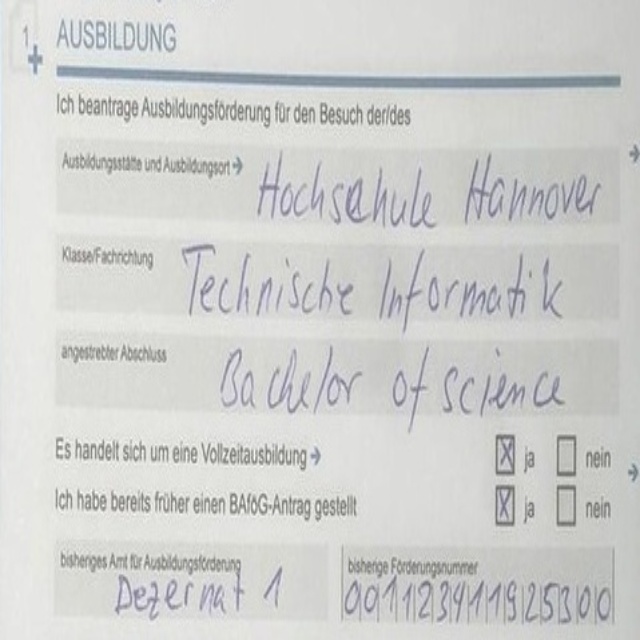 1 AUSBILDUNG
Ich beantrage Ausbildungsförderung für den Besuch der/des
Ausbildungsstätte und Ausbildungsort → Hochschule Hannover
Klasse/Fachrichtung Technische Informatik
angestrebter Abschluss Bachelor of science
Es handelt sich um eine Vollzeitausbildung → ☒ ja ☐ nein
Ich habe bereits früher einen BAföG-Antrag gestellt ☒ ja ☐ nein
bisheriges Amt für Ausbildungsförderung bisherige Förderungsnummer
Dezernat 1 001123411925300